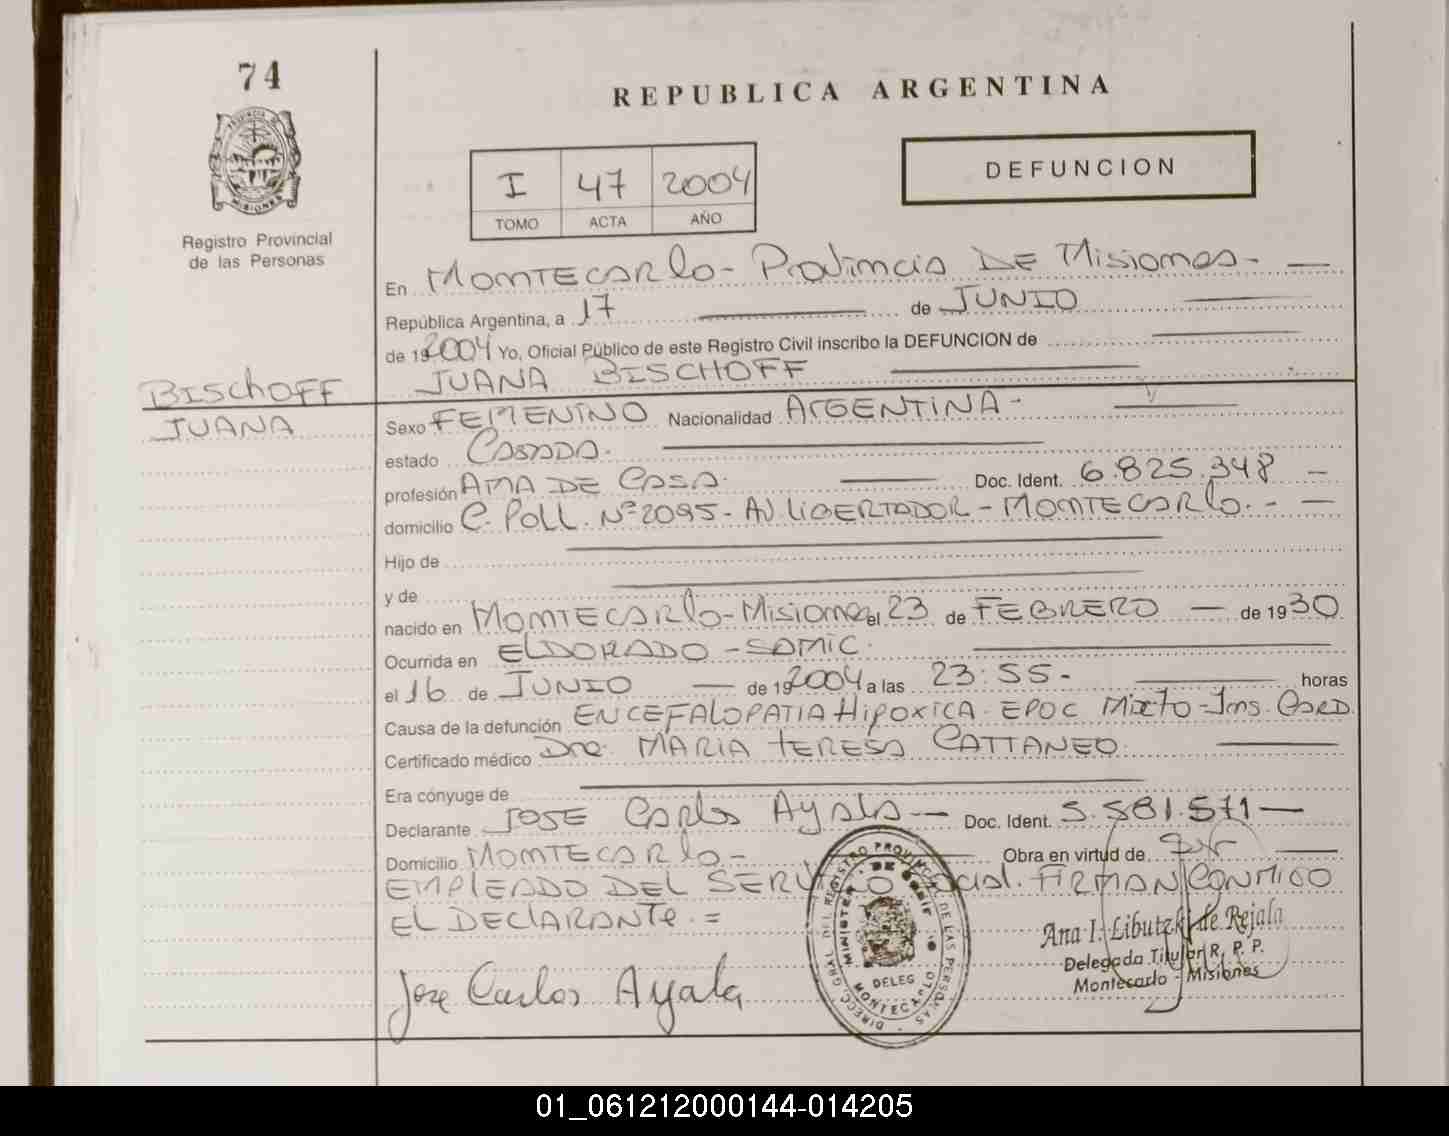 74
REPUBLICA ARGENTINA
PROVINCIA DE
MISIONES
Registro Provincial
de las Personas
I 47 2004
TOMO ACTA AÑO
DEFUNCION
En MONTECARLO - Provincia DE Misiones -
República Argentina, a 17 de JUNIO
de 192004 Yo, Oficial Público de este Registro Civil inscribo la DEFUNCION de
JUANA BISCHOFF
BISCHOFF
JUANA
Sexo FEMENINO Nacionalidad ARGENTINA -
estado CASADA.
profesión AMA DE CASA. Doc. Ident. 6.825.348 -
domicilio C. POLL. Nº2095 - AV LIBERTADOR - MONTECARLO. -
Hijo de
y de
nacido en MONTECARLO - Misiones el 23 de FEBRERO de 1930
Ocurrida en ELDORADO - SAMIC.
el 16 de JUNIO de 192004 a las 23:55 - horas
Causa de la defunción ENCEFALOPATIA HIPOXICA - EPOC Mixto - Ins. CARD.
Certificado médico Dra. MARIA TERESA CATTANEO.
Era cónyuge de
Declarante JOSE Carlos Ayala - Doc. Ident. 5.581.571 -
Domicilio MONTECARLO - Obra en virtud de Ser
EMPLEADO DEL SERVICIO Social. FIRMAN CONMIGO
EL DECLARANTE. =
Jose Carlos Ayala
DIRECC. GRAL. DEL REGISTRO PROVINCIAL DE LAS PERSONAS
MINISTERIO DE GOBIERNO
DELEG
MONTECARLO
Ana I. Libutzki de Rejala
Delegada Titular R. P. P.
Montecarlo - Misiones
01_061212000144-014205